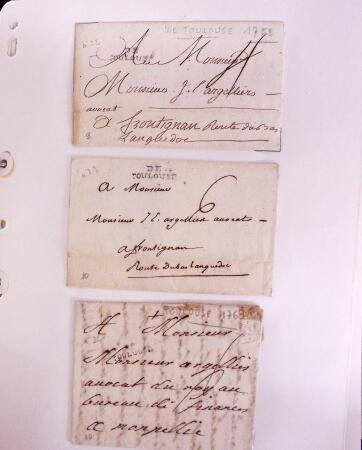 DE TOULOUSE 1758
n 22
DE
TOULOUSE
A Monsieur
Monsieur J. l. argelliers
avocat
a frontignan Route du bas
Languedoc
8
n 23
DE
TOULOUSE
A Monsieur
6
Monsieur J l. argellier avocat
a frontignan
Route du bas languedoc
10
TOULOUSE 176
A Monsieur
TOULOUSE
Monsieur argellies
avocat du roy au
bureau de finances
a monpellier
10